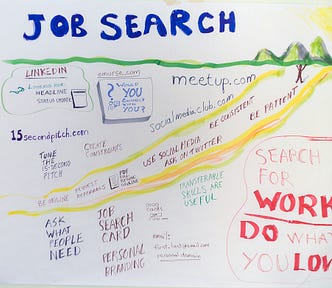 JOB SEARCH
LINKEDIN
HEADLINE
STATUS UPDATE
emurse.com
WOULD
YOU
CONNECT
WITH
YOU?
meetup.com
Socialmediaclub.com
BE CONSISTENT
BE PATIENT
15secondpitch.com
TUNE
THE
15-SECOND
PITCH
CREATE
CONSTRAINTS
USE SOCIAL MEDIA
ASK ON TWITTER
BE ONLINE
REQUEST
REFERRALS
TRANSFERABLE
SKILLS ARE
USEFUL
ASK
WHAT
PEOPLE
NEED
JOB
SEARCH
CARD
PERSONAL
BRANDING
email:
first.last@gmail.com
personal domain
SEARCH
FOR
WORK
DO WHAT
YOU LOV